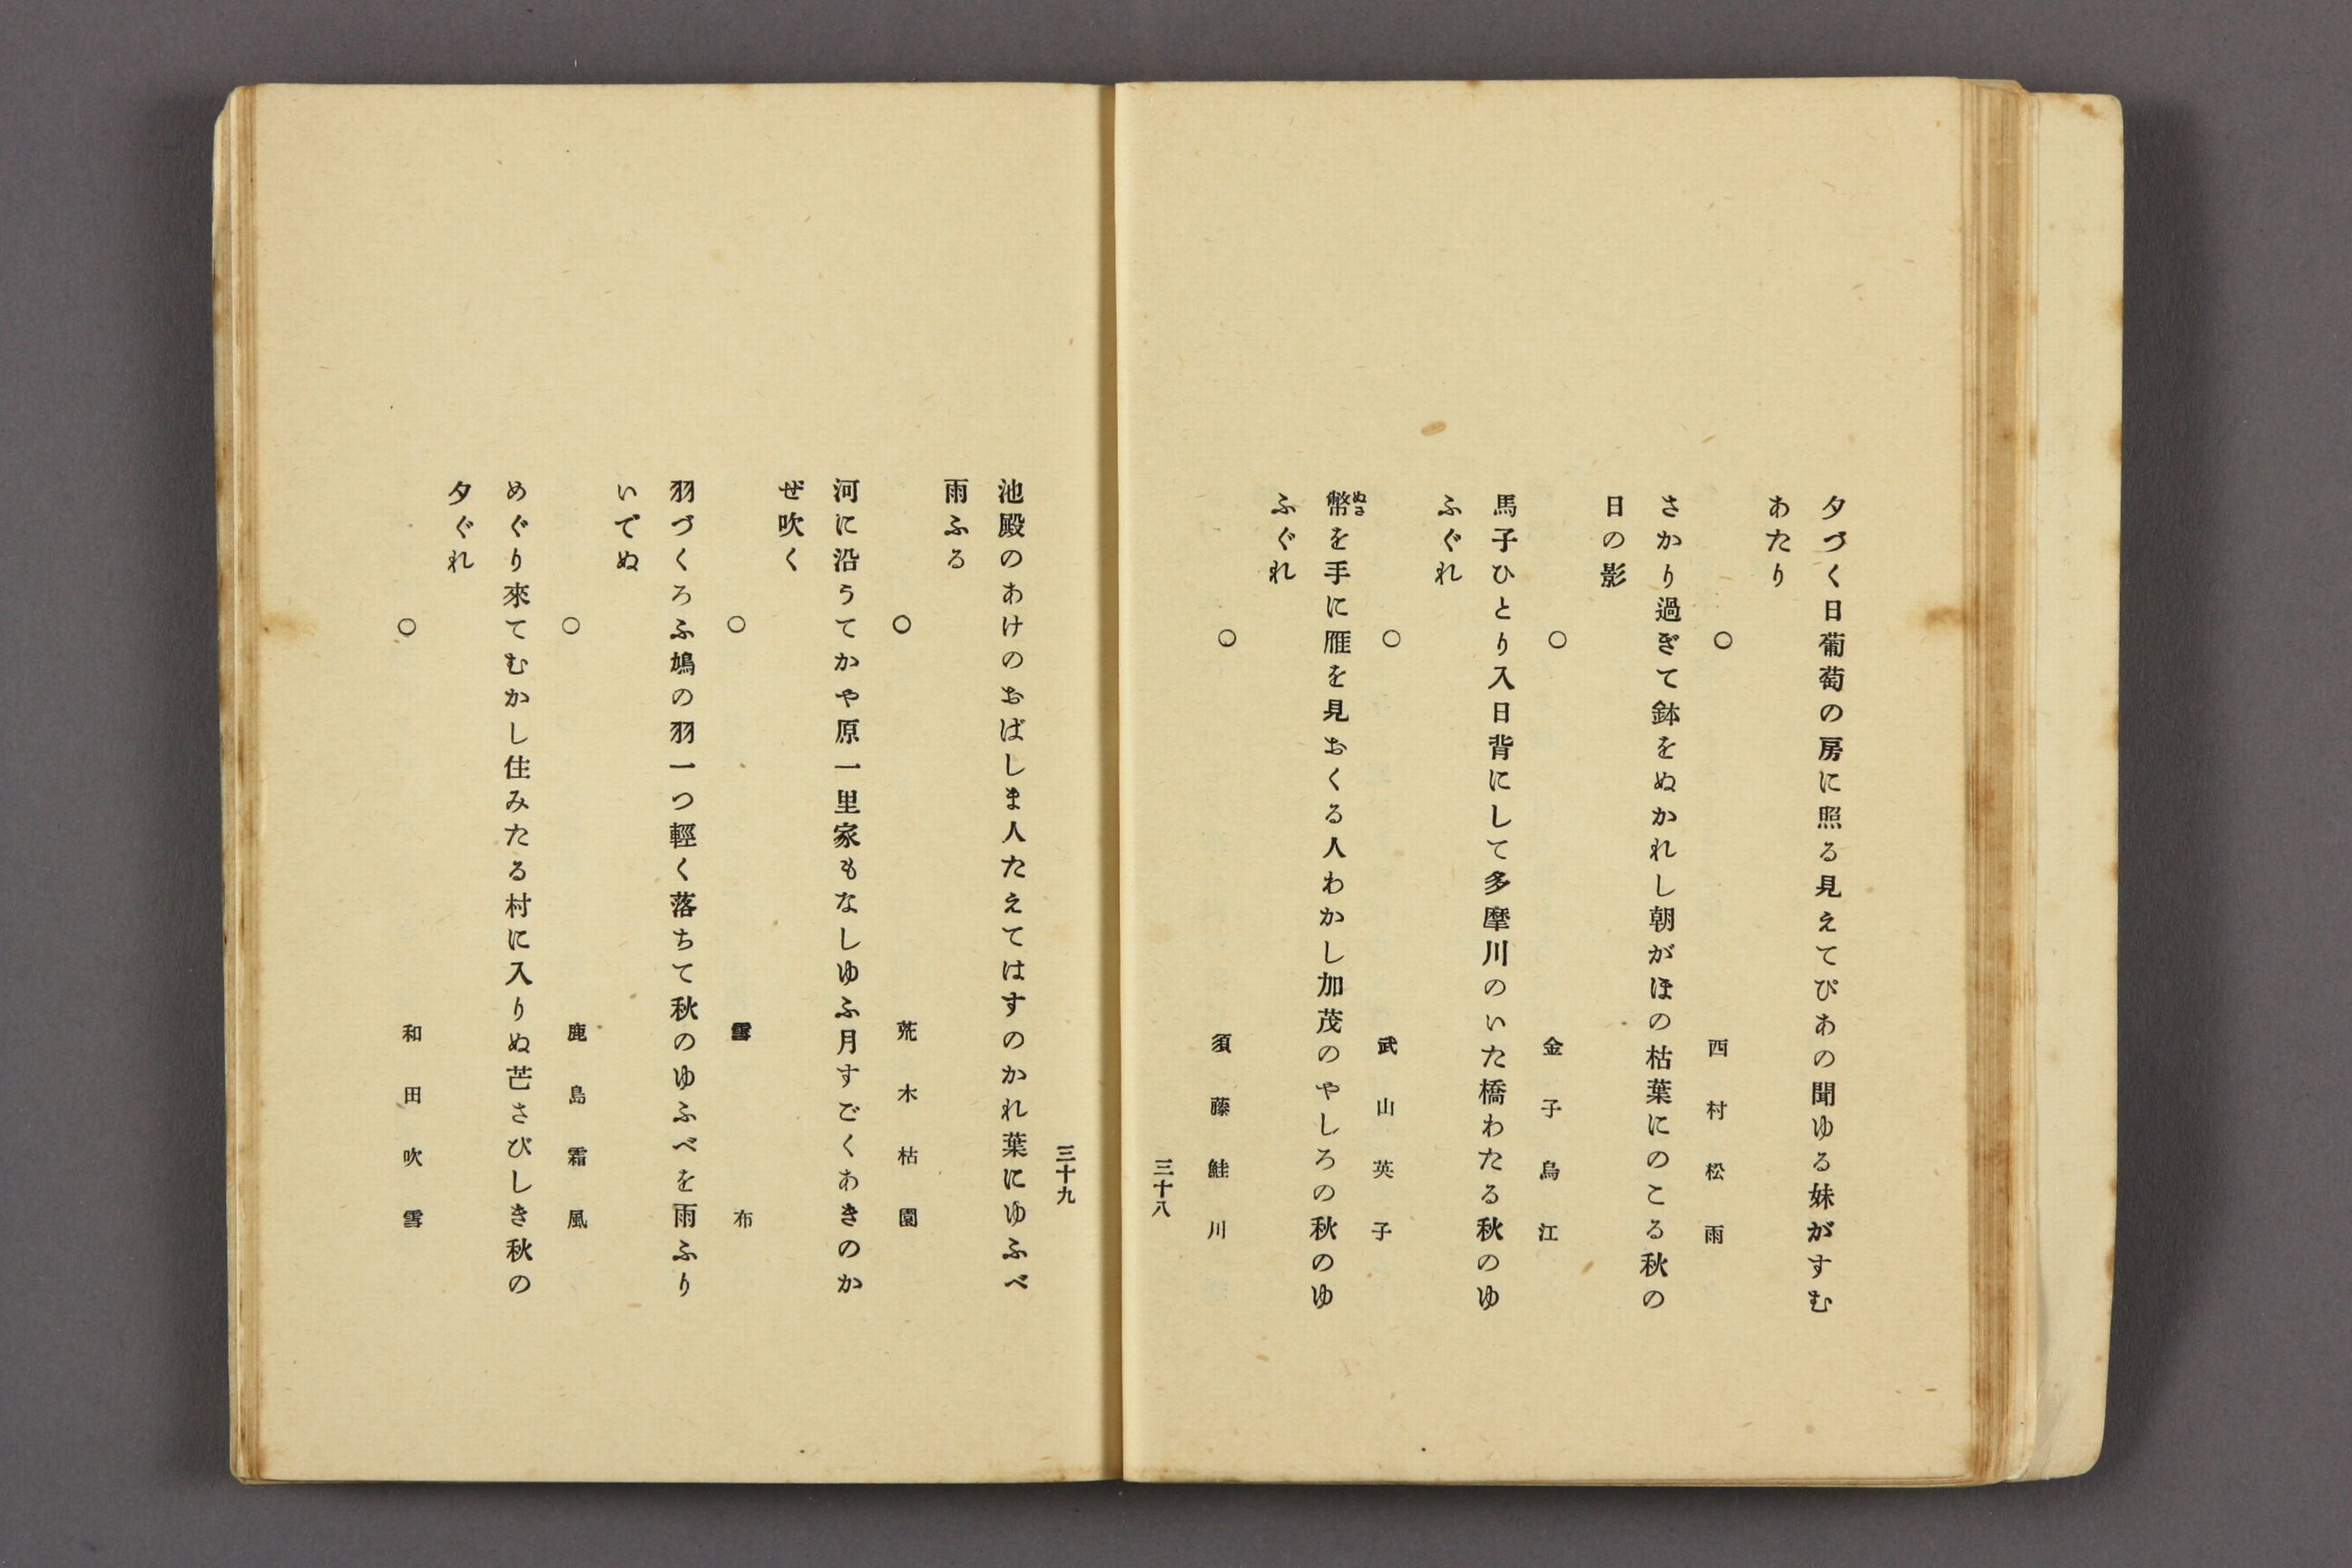 夕づく日葡萄の房に照る見えてぴあの聞ゆる妹がすむ
あたり
○ 西村松雨
さかり過ぎて鉢をぬかれし朝がほの枯葉にのこる秋の
日の影
○ 金子烏江
馬子ひとり入日背にして多摩川のいた橋わたる秋のゆ
ふぐれ
○ 武山英子
幣を手に雁を見おくる人わかし加茂のやしろの秋のゆ
ぬさ
ふぐれ
○ 須藤鮭川
三十八
三十九
池殿のあけのおばしま人たえてはすのかれ葉にゆふべ
雨ふる
○ 荒木枯園
河に沿うてかや原一里家もなしゆふ月すごくあきのか
ぜ吹く
○ 雲布
羽づくろふ鳩の羽一つ輕く落ちて秋のゆふべを雨ふり
いでぬ
○ 鹿島霜風
めぐり來てむかし住みたる村に入りぬ芒さびしき秋の
夕ぐれ
○ 和田吹雪